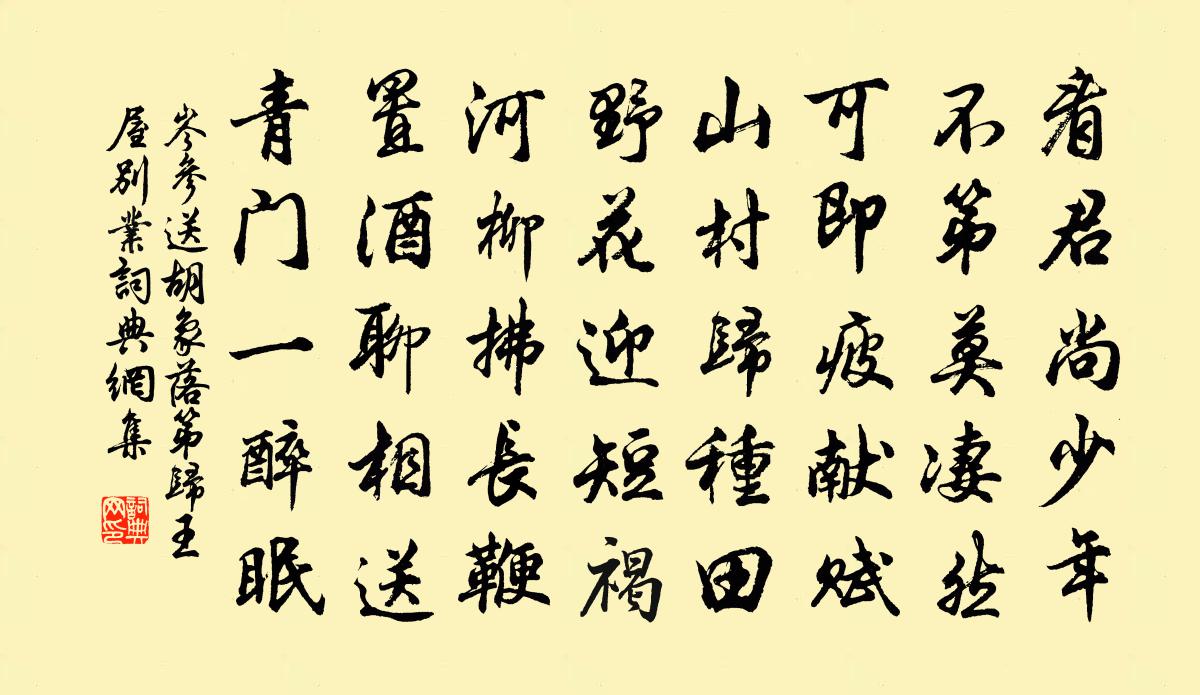 看君尚少年
不第莫凄然
可即疲献赋
山村歸種田
野花迎短褐
河柳拂長鞭
置酒聊相送
青门一醉眠
岑參送胡象落第歸王
屋別業詞典網集
詞典
网印